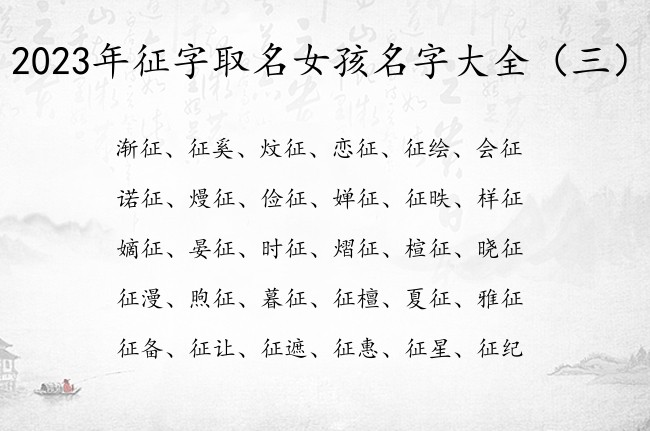 2023年征字取名女孩名字大全（三）
渐征、征奚、炆征、恋征、征绘、会征
诺征、熳征、俭征、婵征、征昳、样征
嫡征、晏征、时征、熠征、楦征、晓征
征漫、煦征、暮征、征檀、夏征、雅征
征备、征让、征遮、征惠、征星、征纪